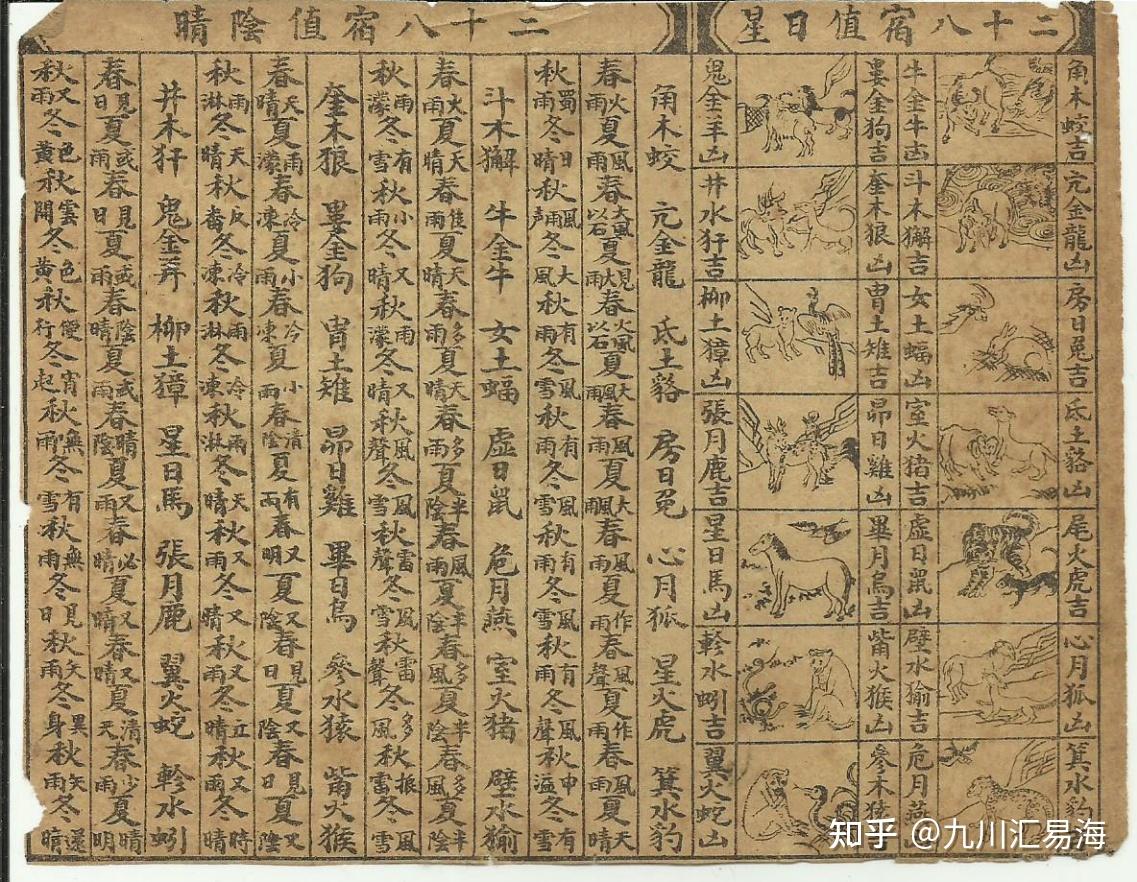 二十八宿值日星
角木蛟吉
亢金龍凶
房日兎吉
氐土貉凶
尾火虎吉
心月狐凶
箕水豹
牛金牛吉
斗木獬吉
女土蝠凶
室火猪吉
虛日鼠凶
壁水㺄吉
危月燕
婁金狗吉
奎木狼凶
胃土雉吉
昴日雞凶
畢月烏吉
觜火猴凶
參木猿
鬼金羊凶
井水犴吉
柳土獐凶
張月鹿吉
星日馬凶
軫水蚓吉
翼火蛇凶
二十八宿值陰晴
角木蛟 亢金龍 氐土貉 房日兎 心月狐 星火虎 箕水豹
春火雨夏風雨春大風以石夏見大雨春火風以石夏大風雨春風雨夏大春風雨夏作雨春風聲夏作雨春風雨夏天晴
秋蜀雨冬日晴秋風雨聲冬大風秋有雨冬風雪秋有雨冬風雪秋有雨冬風雪秋有雨冬風聲秋申冬有雪
斗木獬 牛金牛 女土蝠 虛日鼠 危月燕 室火猪 壁水㺄
春火雨夏天晴春惟雨夏天晴春多雨夏天晴春多雨夏半陰春風雨夏半陰春多風夏半陰春多風夏半陰
秋雨濛冬有雪秋小雨冬又晴秋雨濛冬又晴秋風聲冬風雪秋雷聲冬風雪秋雷聲冬多風秋振雷冬風雪
奎木狼 婁金狗 胃土雉 昴日雞 畢日烏 參水猿 觜火猴
春天晴夏雨濛春冷凍夏小雨春冷凍夏小雨春清陰夏有雨春又明夏又陰春見日夏又陰春見日夏又陰
秋雨淋冬天晴秋反畨冬冷凍秋雨淋冬冷凍秋雨淋冬天晴秋又雨冬又晴秋又雨冬立晴秋又雨冬時晴
井木犴 鬼金羊 柳土獐 星日馬 張月鹿 翼火蛇 軫水蚓
春見日夏或雨春見日夏或雨春陰晴夏或雨春晴陰夏又雨春必晴夏又晴春又晴夏清天春少雨夏晴明
秋又雨冬色黄秋雲開冬色黄秋便行冬宵起秋無雨冬有雪秋無雨冬見日秋矢雨冬異身秋矢雨冬還晴
知乎 @九川汇易海